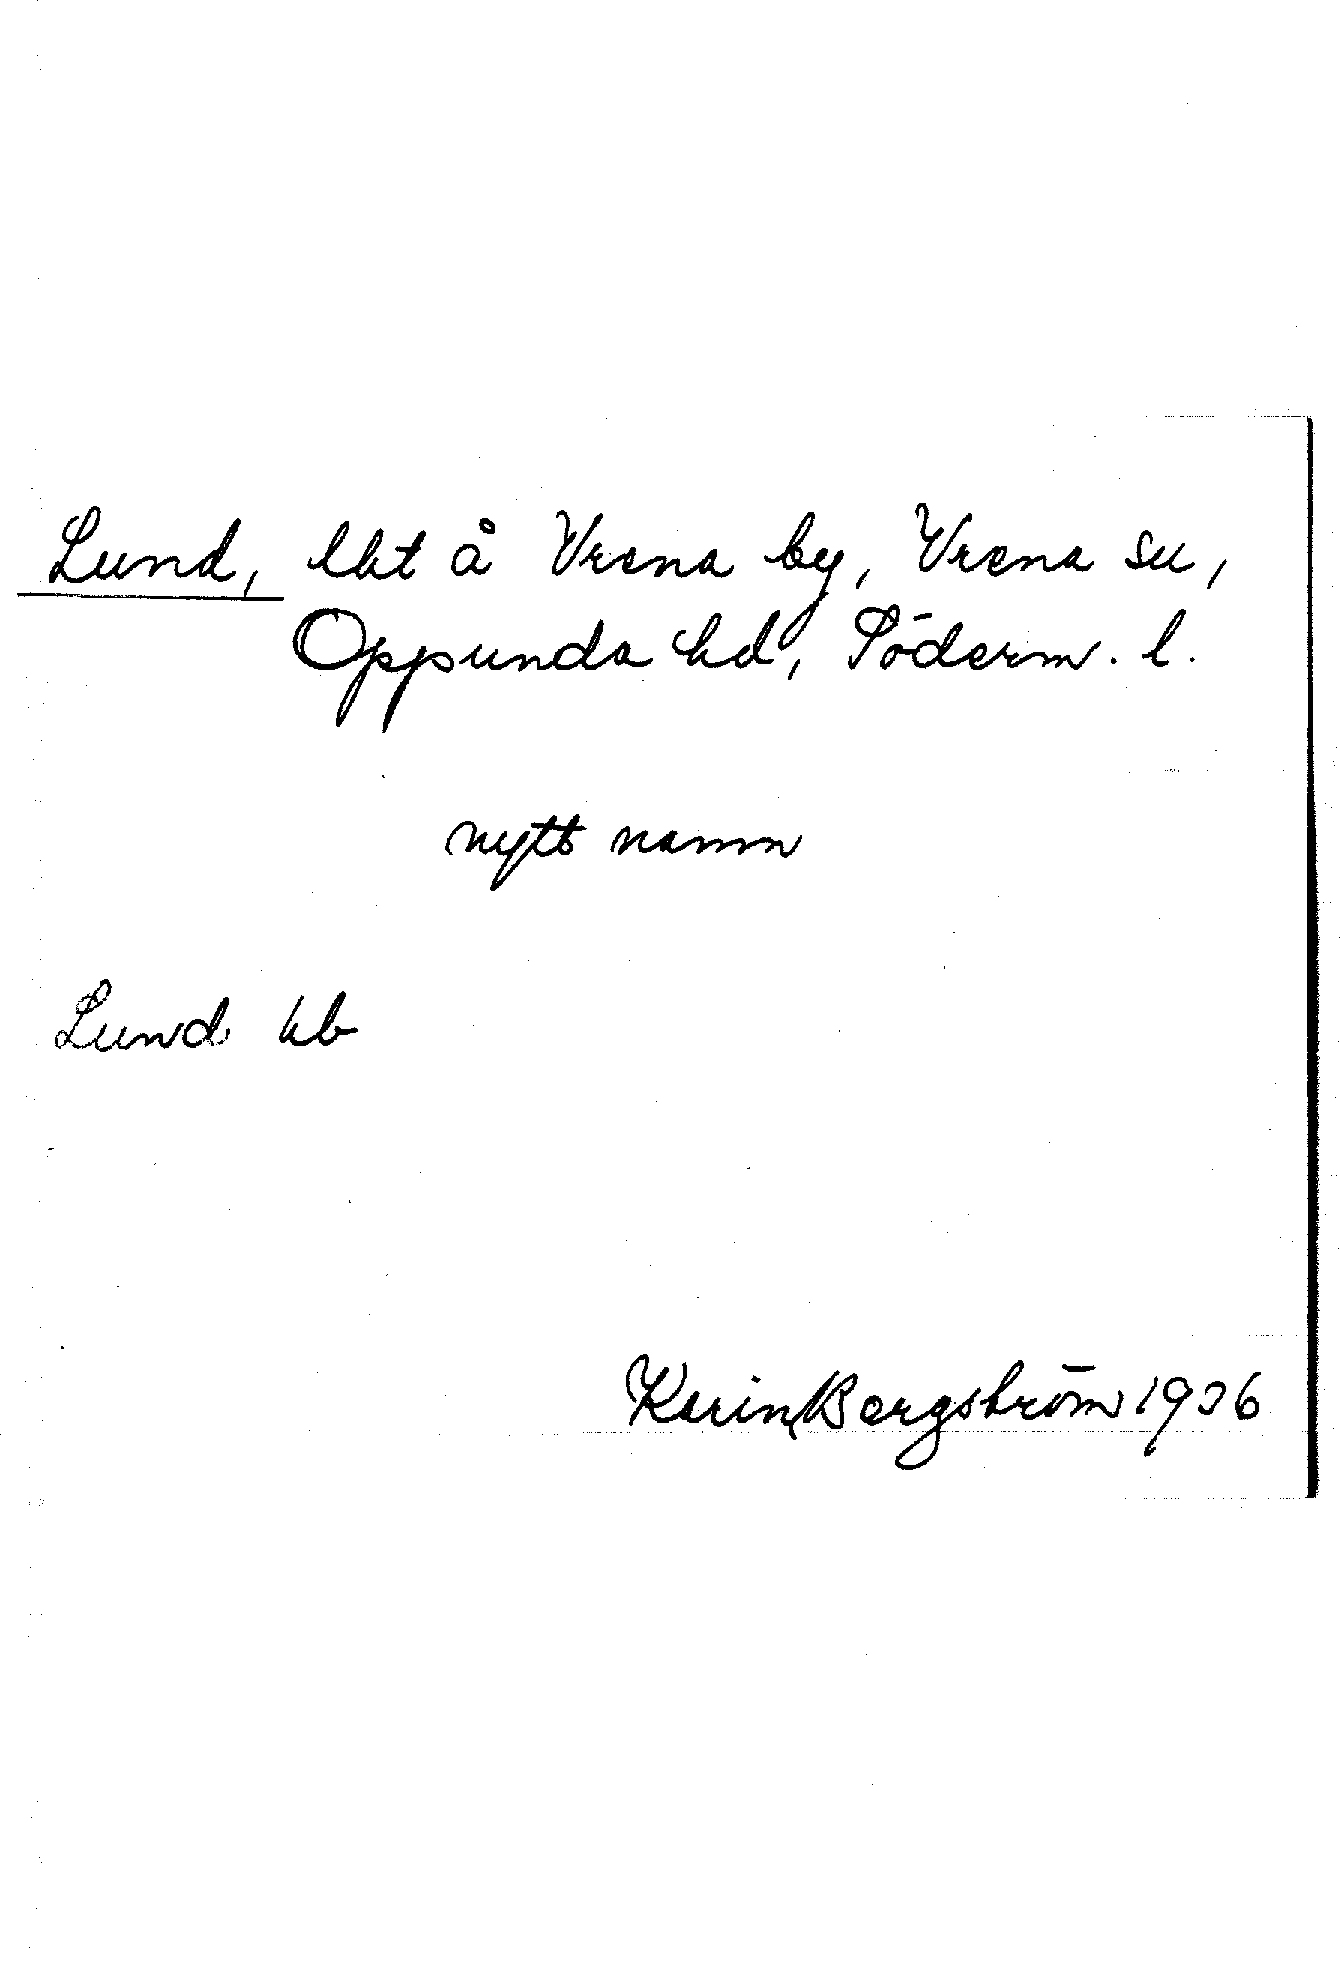 Lund, lht å Vrena by, Vrena sn,
Oppunda hd, Söderm. l.
nytt namn
Lund kb
Karin Bergström 1936